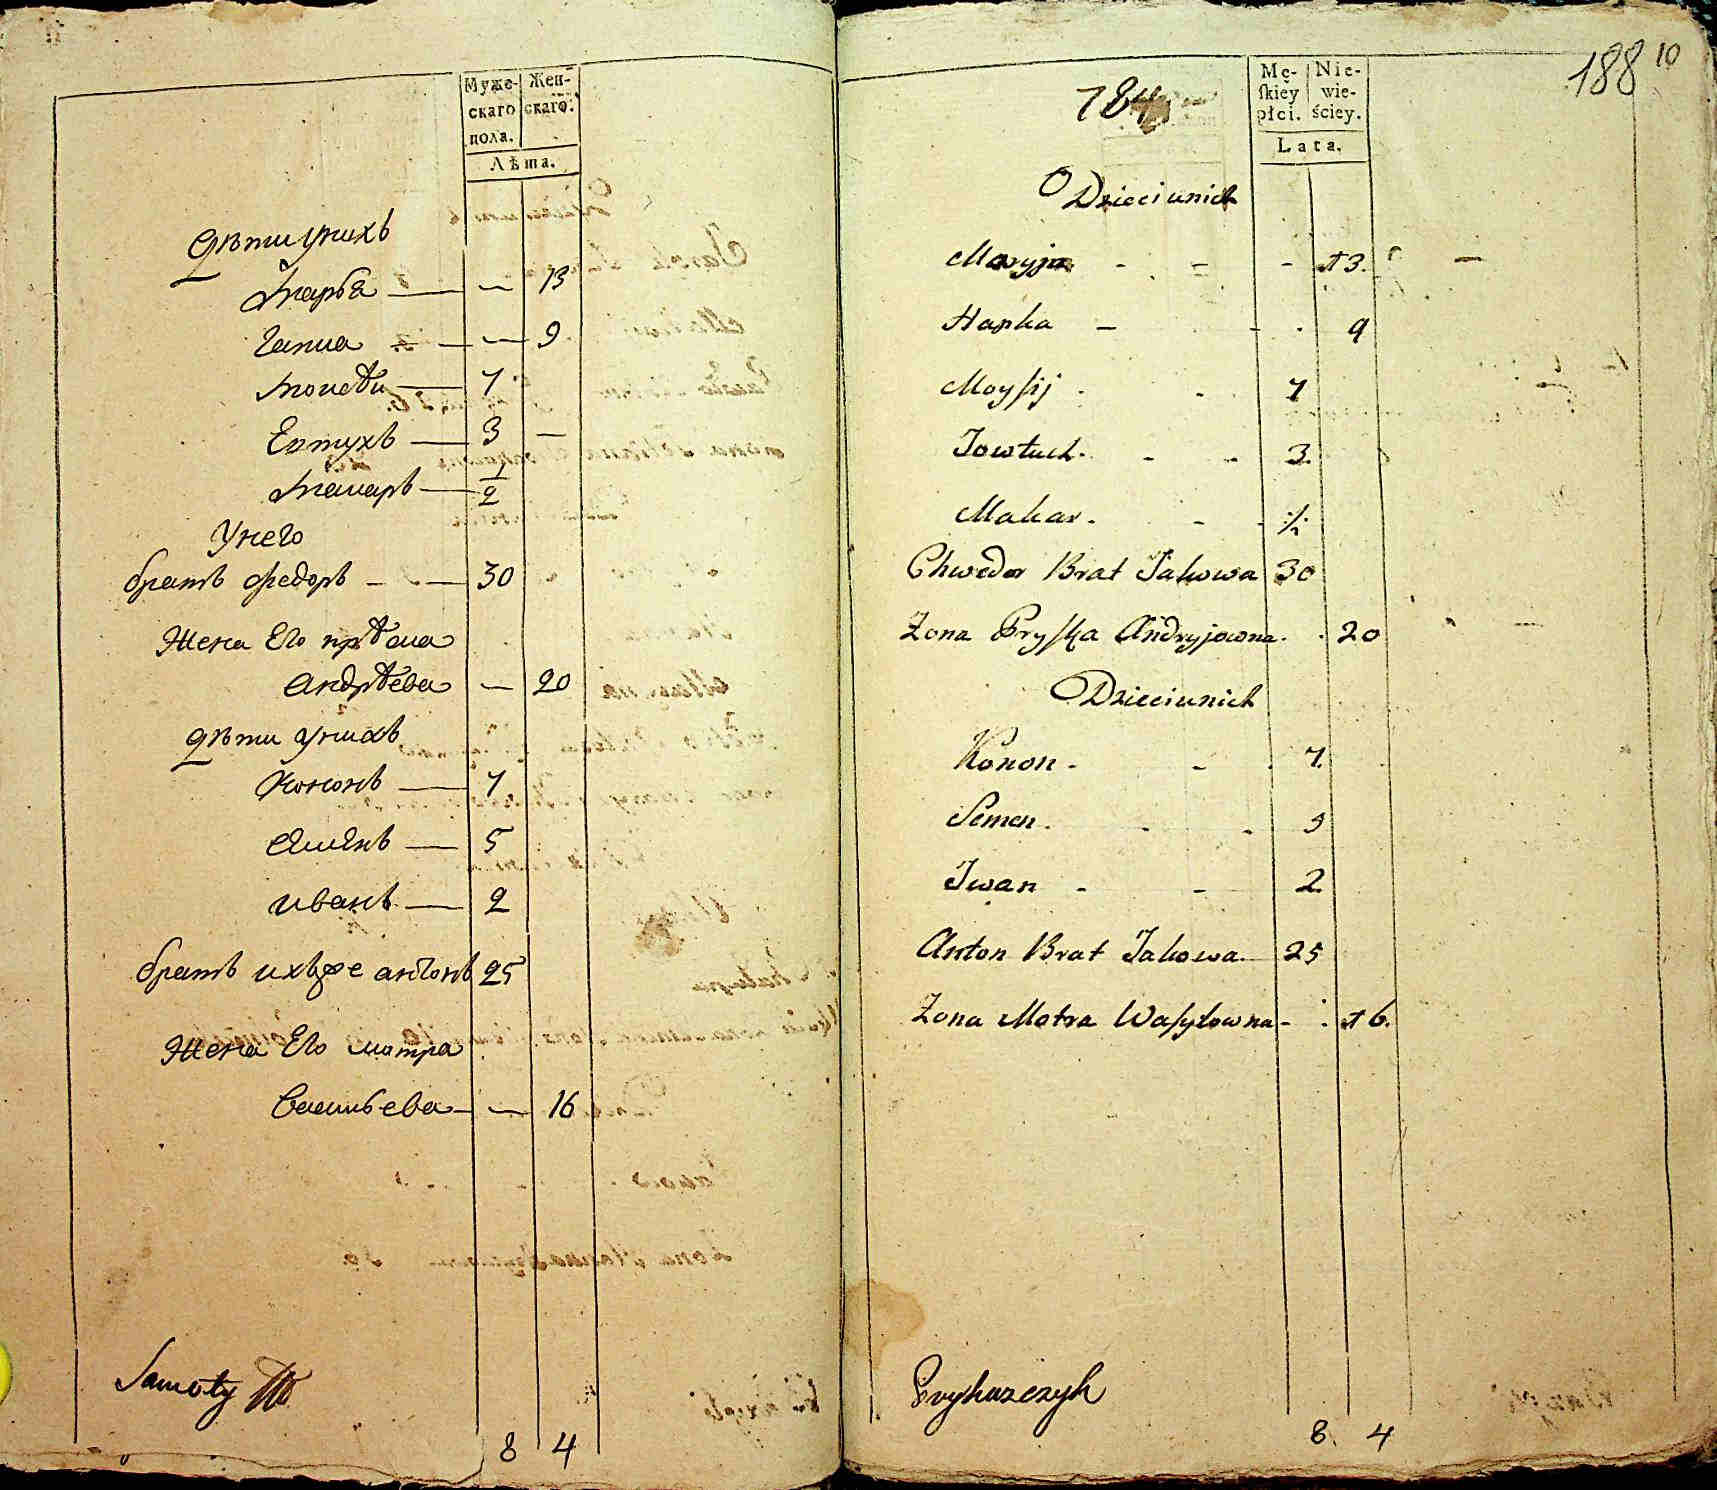 Муже-
скаго
пола.
Жен-
скаго.
Лѣта.
Дѣти унихъ
Марья — — 13
Гапка — — 9
Моисѣи — 7
Евтухъ — 3 —
Макаръ — 1/2
Унего
братъ Федоръ — — 30
Жена Его прѣска
андрѣева — 20
дѣти унихъ
Кононъ — 7
Сѣмѣнъ — 5
иванъ — 2
братъ ихъже антонъ 25
Жена Его мотра
Васильева — — 16
Samoty
8 4
188 10
Mę-
ſkiey
płci.
Nie-
wie-
ściey.
Lata.
Dzieci unich
Maryja - - - 13.
Hapka - - . 9
Moyſij . . 7
Jowtuch. - - 3.
Makar. - - ½
Chwedor Brat Jakowa 30
Zona Pryſka Andryjowna. . 20
Dzieci unich
Konon - - . 7.
Semen. . . 5
Iwan - - 2
Anton Brat Jakowa. 25
Zona Motra Waſylowna - . 16.
Prykazczyk
8. 4